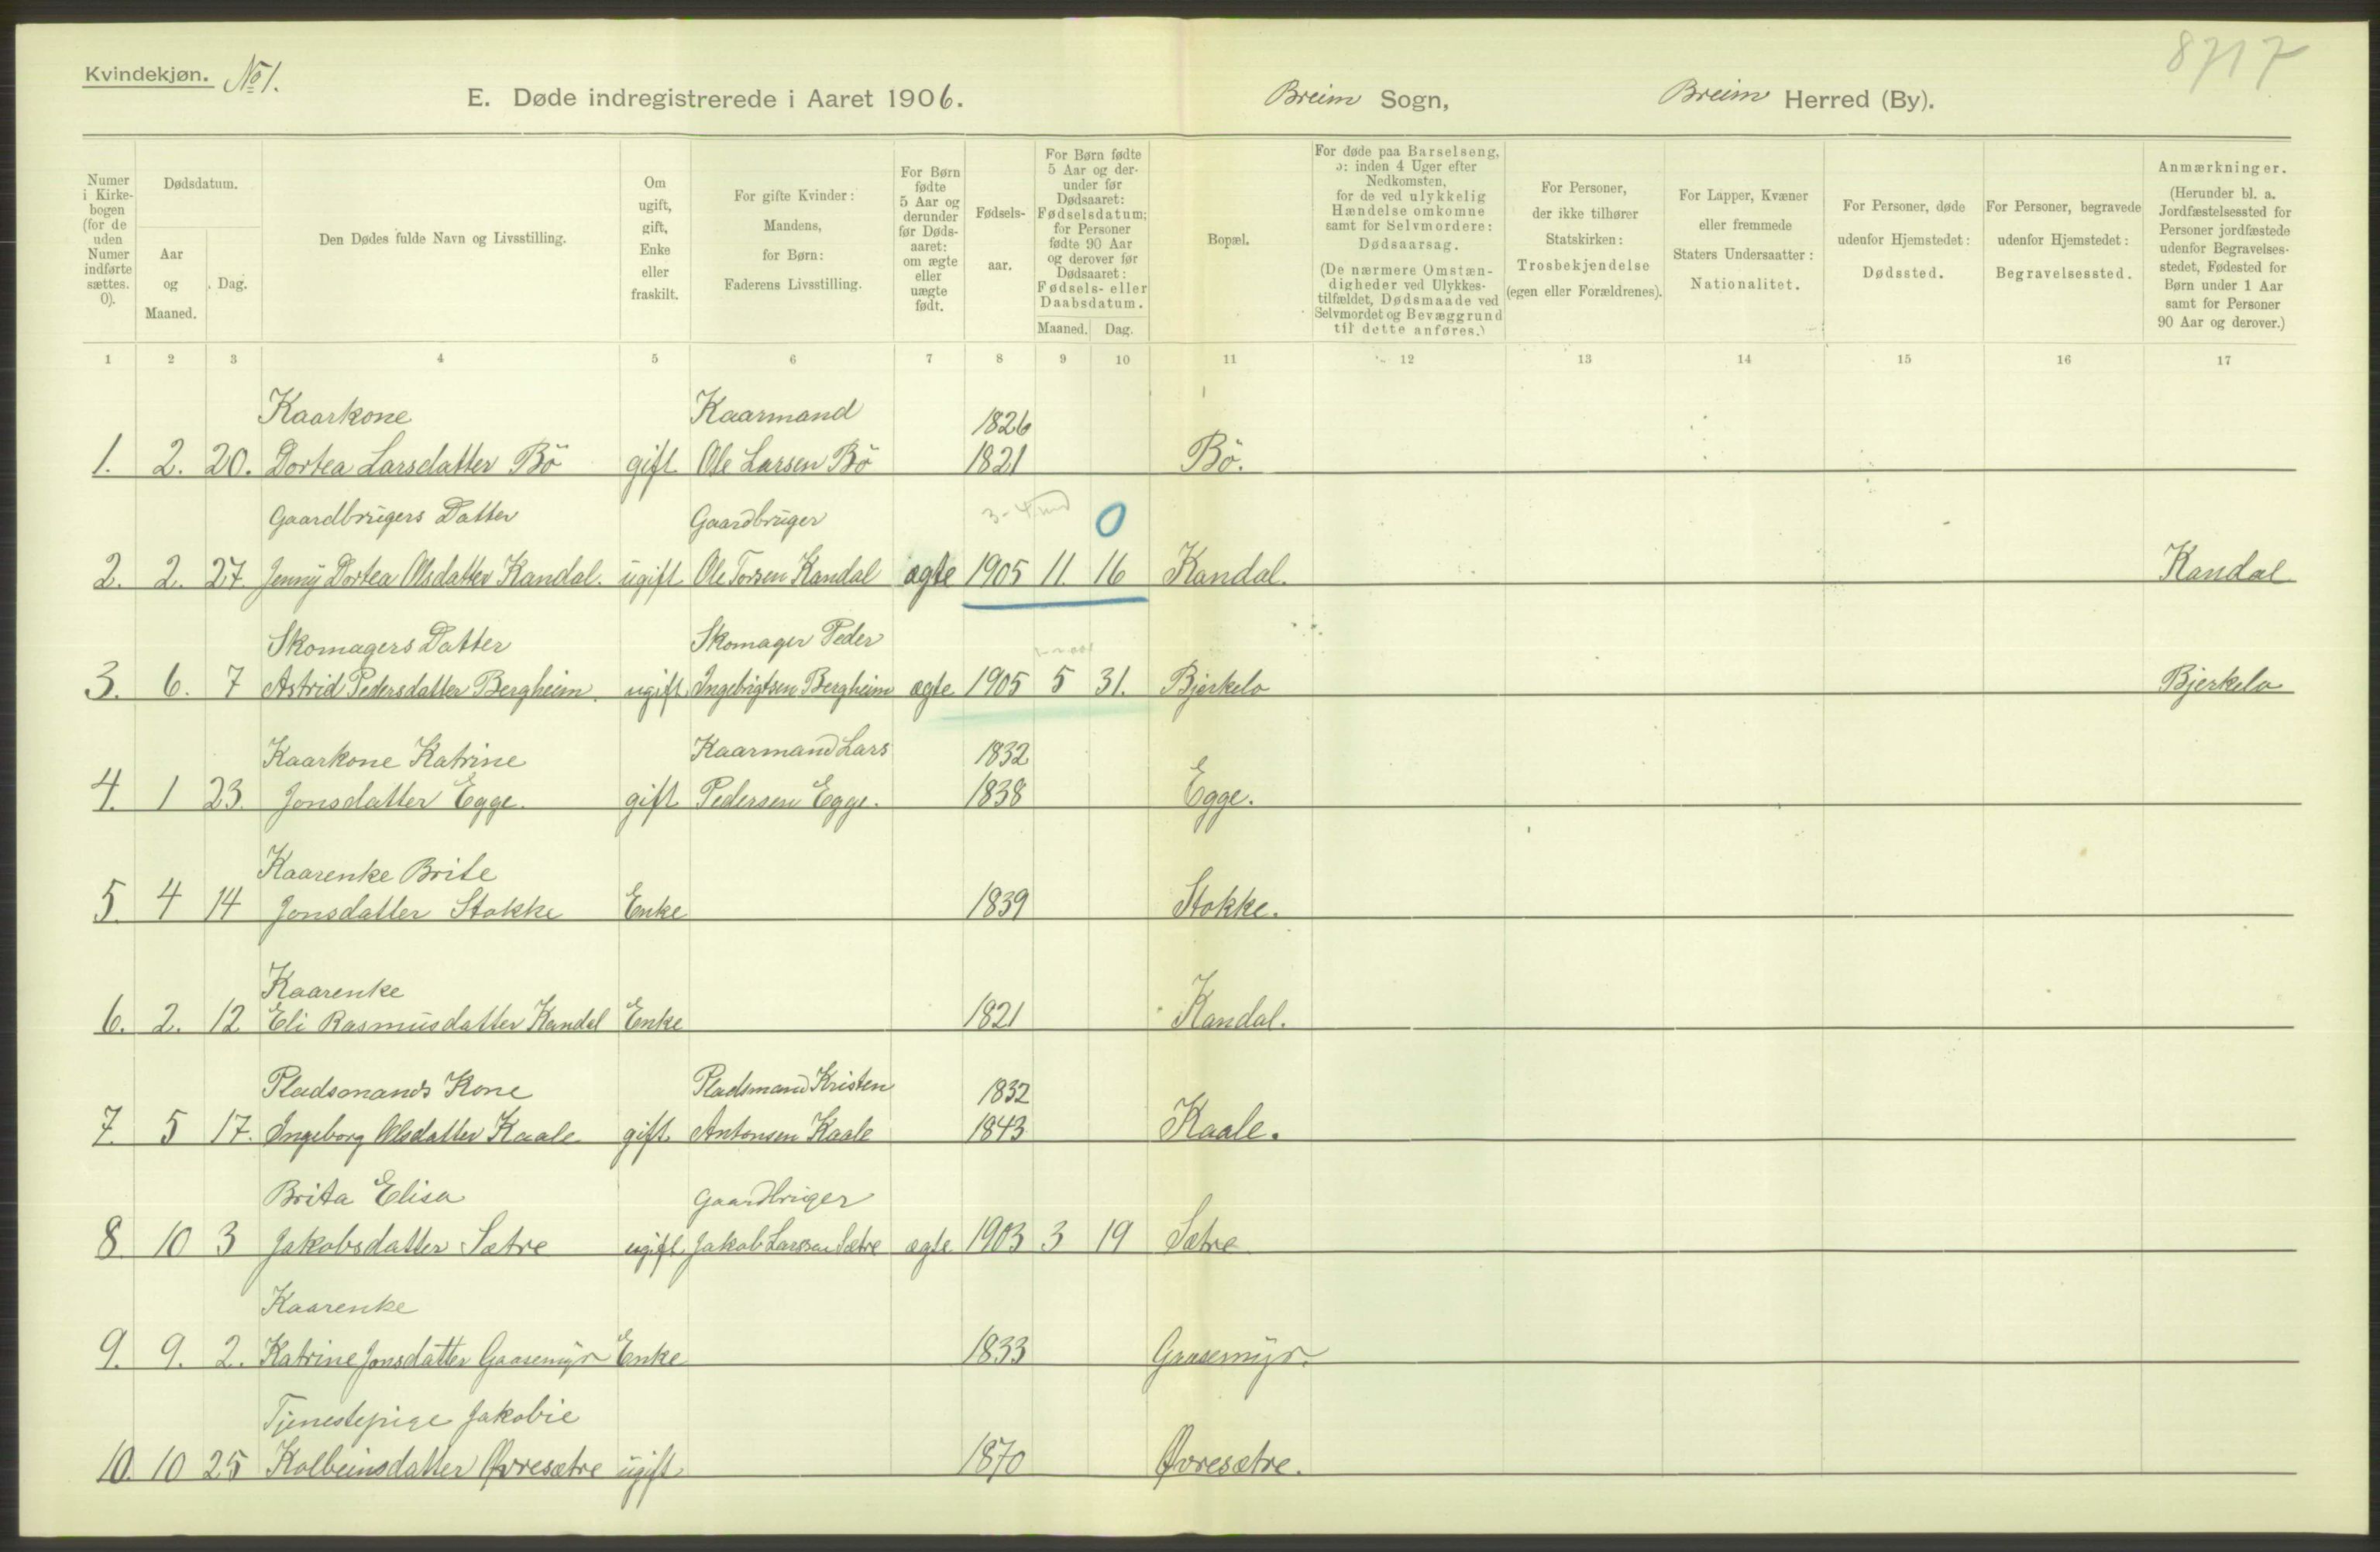 Kvindekjøn. № 1.
8717
E. Døde indregistrerede i Aaret 1906. Breim Sogn, Breim Herred (By).
Numer i Kirkebogen (for de uden Numer indførte sættes. 0).
Dødsdatum.
Aar og Maaned.
Dag.
Den Dødes fulde Navn og Livsstilling.
Om ugift, gift, Enke eller fraskilt.
For gifte Kvinder: Mandens, for Børn: Faderens Livsstilling.
For Børn fødte 5 Aar og derunder før Dødsaaret: om ægte eller uægte født.
Fødselsaar.
For Børn fødte 5 Aar og derunder før Dødsaaret: Fødselsdatum; for Personer fødte 90 Aar og derover før Dødsaaret: Fødsels- eller Daabsdatum.
Maaned. Dag.
Bopæl.
For døde paa Barselseng, ɔ: inden 4 Uger efter Nedkomsten, for de ved ulykkelig Hændelse omkomne samt for Selvmordere: Dødsaarsag.
(De nærmere Omstændigheder ved Ulykkestilfældet, Dødsmaade ved Selvmordet og Bevæggrund til dette anføres.)
For Personer, der ikke tilhører Statskirken: Trosbekjendelse (egen eller Forældrenes).
For Lapper, Kvæner eller fremmede Staters Undersaatter: Nationalitet.
For Personer, døde udenfor Hjemstedet: Dødssted.
For Personer, begravede udenfor Hjemstedet: Begravelsessted.
Anmærkninger.
(Herunder bl. a. Jordfæstelsessted for Personer jordfæstede udenfor Begravelsesstedet, Fødested for Børn under 1 Aar samt for Personer 90 Aar og derover.)
1 2 3 4 5 6 7 8 9 10 11 12 13 14 15 16 17
Kaarkone Kaarmand 1826
1. 2. 20. Dortea Larsdatter Bö gift Ole Larsen Bö 1821 Bö.
Gaardbrugers Datter Gaardbruger 0
2. 2. 27. Jenny Dortea Olsdatter Kandal. ugift Ole Torsen Kandal ægte 1905 11. 16 Kandal. Kandal
Skomagers Datter Skomager Peder
3. 6. 7 Astrid Pedersdatter Bergheim. ugift Ingebrigtsen Bergheim ægte 1905 5 31. Bjerkelo Bjerkelo
Kaarkone Katrine Kaarmand Lars 1832
4. 1 23. Jonsdatter Egge. gift Pedersen Egge. 1838 Egge.
Kaarenke Brite
5. 4 14 Jonsdatter Stokke Enke 1839 Stokke.
Kaarenke
6. 2. 12 Eli Rasmusdatter Kandal Enke 1821 Kandal.
Pladsmands Kone Pladsmand Kristen 1832
7. 5 17. Ingeborg Olsdatter Kaale gift Antonsen Kaale 1843 Kaale.
Brita Elisa Gaardbruger
8. 10 3 Jakobsdatter Sætre ugift Jakob Larssen Sætre ægte 1903 3 19 Sætre
Kaarenke
9. 9. 2. Katrine Jonsdatter Gaasemyr Enke 1833 Gaasemyr.
Tjenestepige Jakobie
10. 10 25 Kolbeinsdatter Øvresætre ugift 1870 Øvresætre.